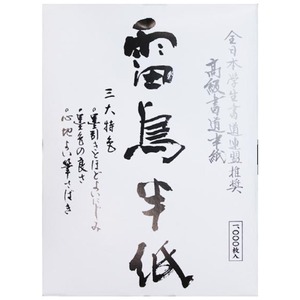 全日本学生書道連盟推奨
高級書道半紙
雷鳥半紙
三大特色
○墨引きとほどよいにじみ
○墨色の良さ
○心地よい筆さばき
一、〇〇〇枚入